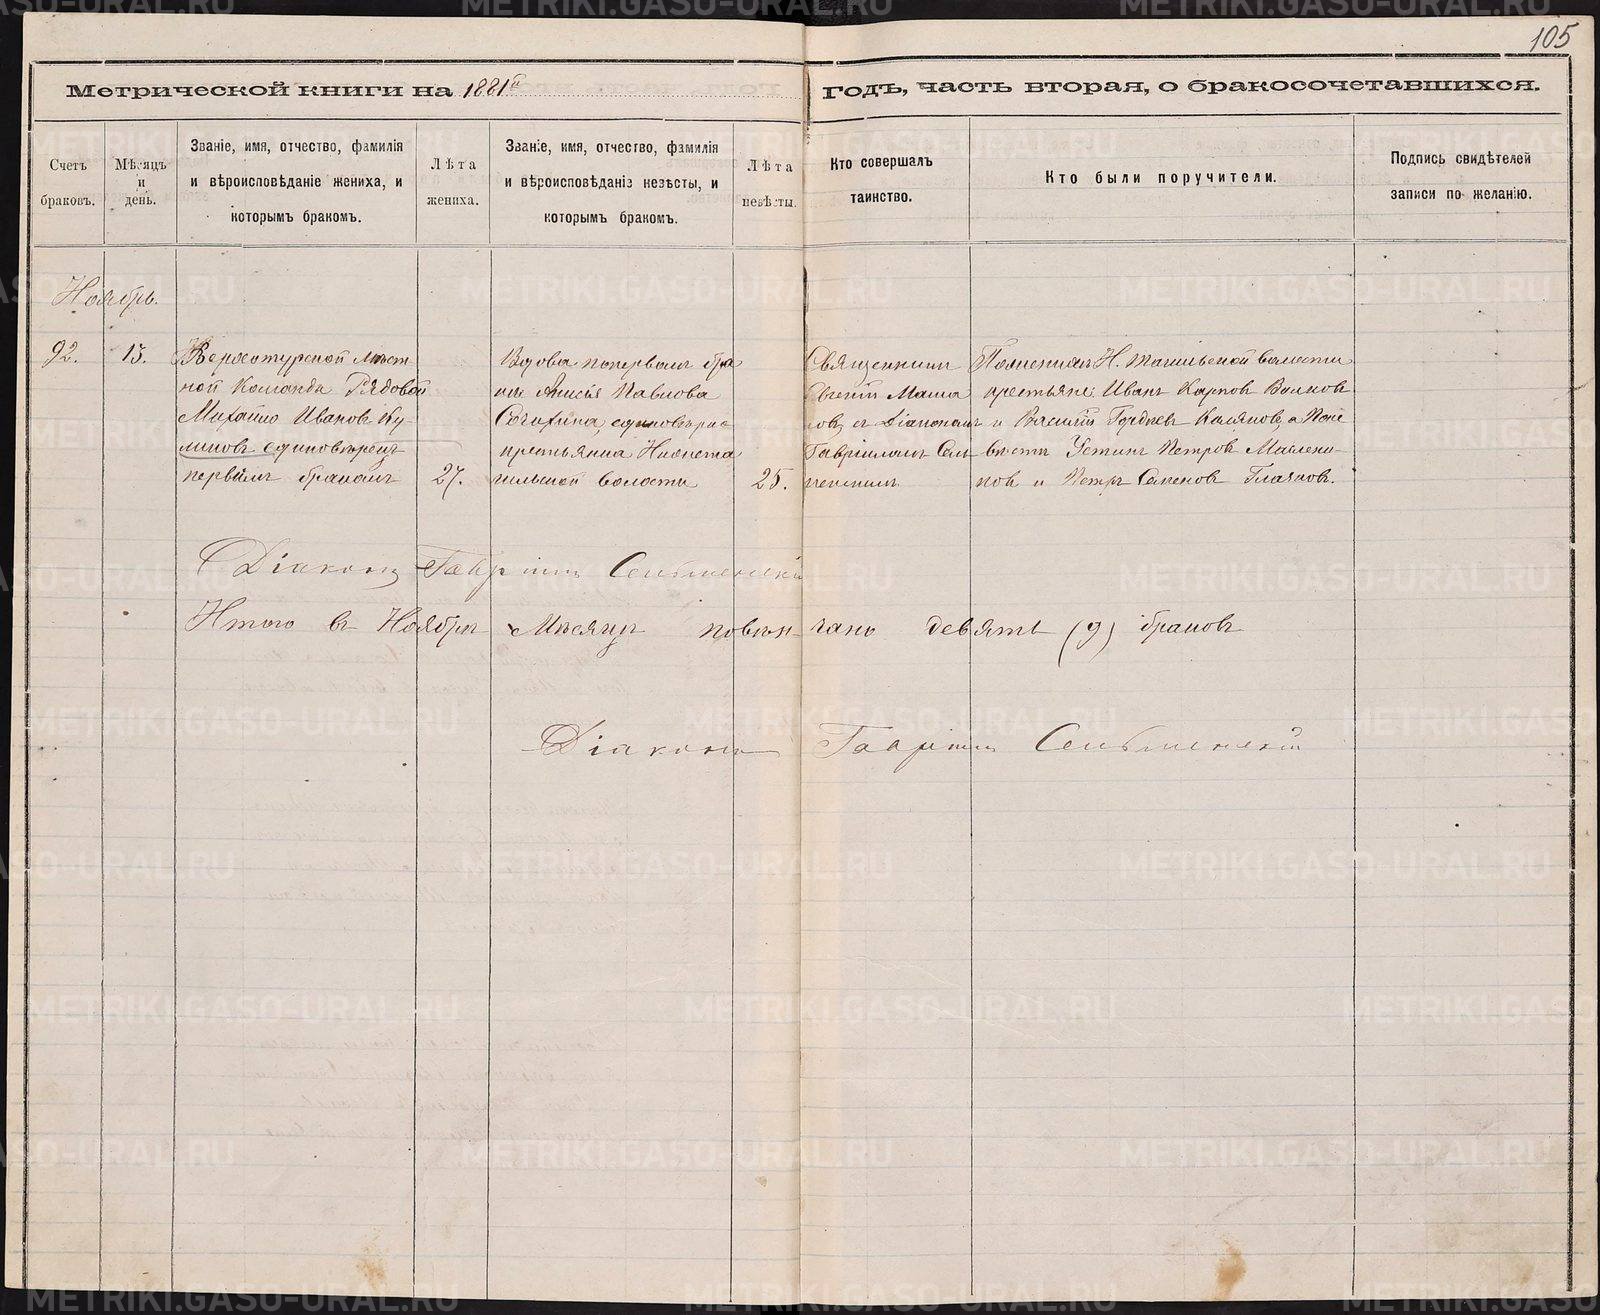 105
Метрической книги на 1881й годъ, часть вторая, о бракосочетавшихся.
Счетъ браковъ.
Мѣсяцъ и день.
Званіе, имя, отчество, фамилія
и вѣроисповѣданіе жениха, и
которымъ бракомъ.
Лѣта
жениха.
Званіе, имя, отчество, фамилія
и вѣроисповѣданіе невѣсты, и
которымъ бракомъ.
Лѣта
невѣсты.
Кто совершалъ
таинство.
Кто были поручители.
Подпись свидѣтелей
записи по желанію.
Ноябрь.
92.
13.
Верхотурской мѣст
ной Команды Рядовой
Михайло Иванов Ку-
ликовъ единовѣрецъ
первымъ бракомъ
27.
Вдова по первомъ бра
кѣ Анисья Павлова
единовѣрка
крестьянка Нижнета
гильской волости
25.
Священникъ
Евгеній
съ Діакономъ
Гавріиломъ Сель
менскимъ
По женихѣ Н. Тагильской волости
крестьяне: Иванъ Карпов Волков
и Василій Гордѣев Касянов, а По не
вѣстѣ Устинъ Петров Маслени
ков и Петръ Семенов Глазков.
Діаконъ Гавріилъ Сельменскій
Итого въ Ноябрѣ Мѣсяцѣ повѣн- чано девять (9) браков
Діаконъ Гавріилъ Сельменскій
METRIKI.GASO-URAL.RU